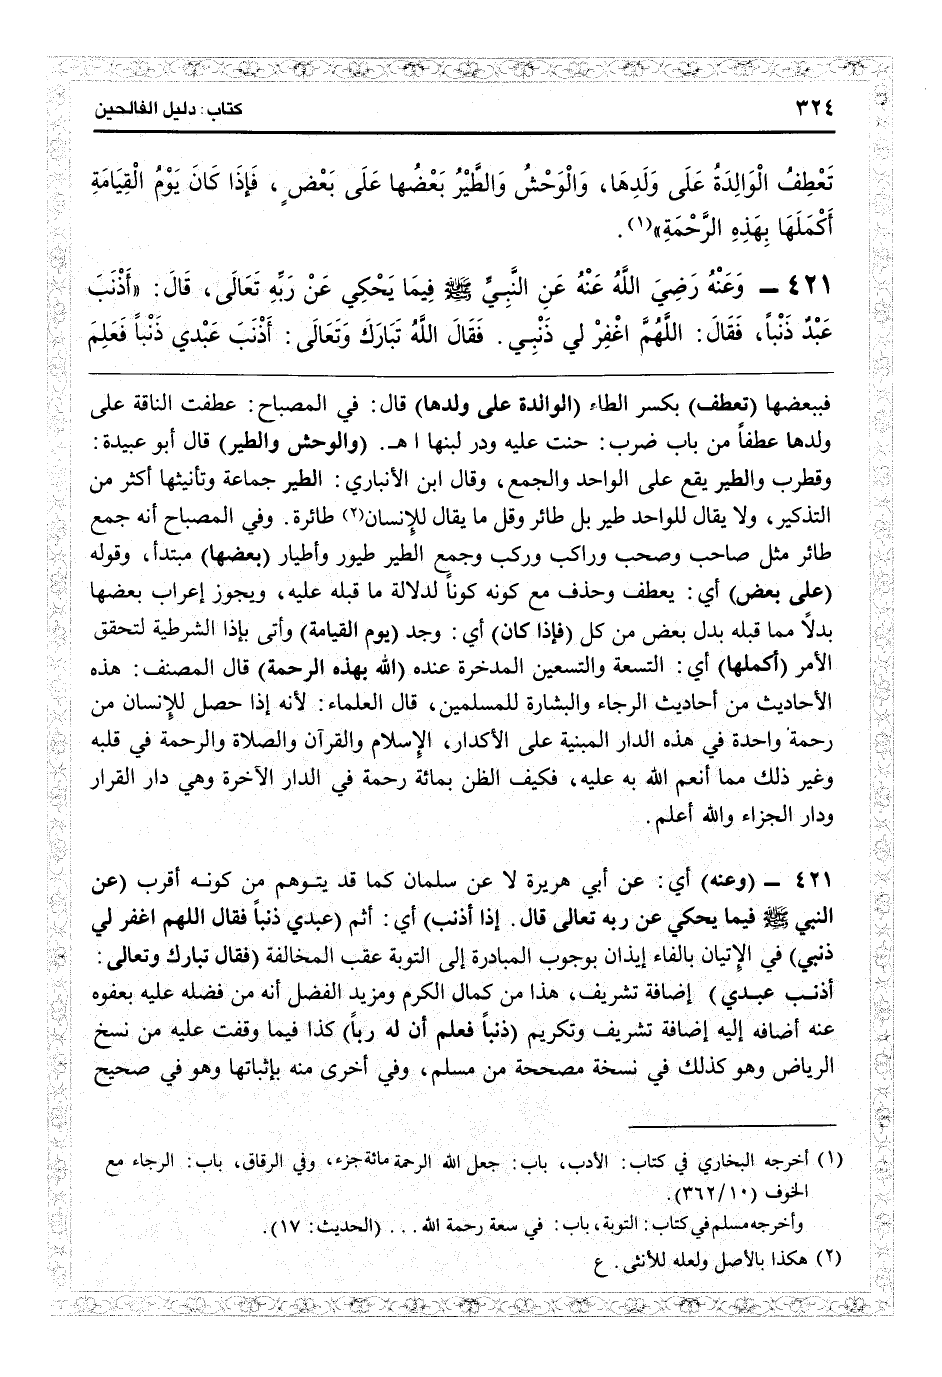 ٣٢٤
كتاب: دليل الفالحين
تَعْطِفُ الْوَالِدَةُ عَلَى وَلَدِهَا، وَالْوَحْشُ وَالطَّيْرُ بَعْضُها عَلَى بَعْضٍ، فَإِذَا كَانَ يَوْمُ الْقِيَامَةِ
أَكْمَلَهَا بِهَذِهِ الرَّحْمَةِ»(١).
٤٢١ ــ وَعَنْهُ رَضِيَ اللَّهُ عَنْهُ عَنِ النَّبِيِّ ﷺ فِيمَا يَحْكِي عَنْ رَبِّهِ تَعَالَى، قَالَ: «أَذْنَبَ
عَبْدٌ ذَنْباً، فَقَالَ: اللَّهُمَّ اغْفِرْ لي ذَنْبِي. فَقَالَ اللَّهُ تَبَارَكَ وَتَعَالَى: أَذْنَبَ عَبْدِي ذَنْباً فَعَلِمَ
فببعضها (تعطف) بكسر الطاء (الوالدة على ولدها) قال: في المصباح: عطفت الناقة على
ولدها عطفاً من باب ضرب: حنت عليه ودر لبنها ا هـ. (والوحش والطير) قال أبو عبيدة:
وقطرب والطير يقع على الواحد والجمع، وقال ابن الأنباري: الطير جماعة وتأنيثها أكثر من
التذكير، ولا يقال للواحد طير بل طائر وقل ما يقال للإنسان(٢) طائرة. وفي المصباح أنه جمع
طائر مثل صاحب وصحب وراكب وركب وجمع الطير طيور وأطيار (بعضها) مبتدأ، وقوله
(على بعض) أي: يعطف وحذف مع كونه كوناً لدلالة ما قبله عليه، ويجوز إعراب بعضها
بدلاً مما قبله بدل بعض من كل (فإذا كان) أي: وجد (يوم القيامة) وأتى بإذا الشرطية لتحقق
الأمر (أكملها) أي: التسعة والتسعين المدخرة عنده (الله بهذه الرحمة) قال المصنف: هذه
الأحاديث من أحاديث الرجاء والبشارة للمسلمين، قال العلماء: لأنه إذا حصل للإنسان من
رحمة واحدة في هذه الدار المبنية على الأكدار، الإسلام والقرآن والصلاة والرحمة في قلبه
وغير ذلك مما أنعم الله به عليه، فكيف الظن بمائة رحمة في الدار الآخرة وهي دار القرار
ودار الجزاء والله أعلم.
٤٢١ ــ (وعنه) أي: عن أبي هريرة لا عن سلمان كما قد يتوهم من كونه أقرب (عن
النبي ﷺ فيما يحكي عن ربه تعالى قال. إذا أذنب) أي: أثم (عبدي ذنباً فقال اللهم اغفر لي
ذنبي) في الإتيان بالفاء إيذان بوجوب المبادرة إلى التوبة عقب المخالفة (فقال تبارك وتعالى:
أذنب عبدي) إضافة تشريف، هذا من كمال الكرم ومزيد الفضل أنه من فضله عليه بعفوه
عنه أضافه إليه إضافة تشريف وتكريم (ذنباً فعلم أن له رباً) كذا فيما وقفت عليه من نسخ
الرياض وهو كذلك في نسخة مصححة من مسلم، وفي أخرى منه بإثباتها وهو في صحيح
(١) أخرجه البخاري في كتاب: الأدب، باب: جعل الله الرحمة مائة جزء، وفي الرقاق، باب: الرجاء مع
الخوف (٣٦٢/١٠).
وأخرجه مسلم في كتاب: التوبة، باب: في سعة رحمة الله... (الحديث: ١٧).
(٢) هكذا بالأصل ولعله للأنثى. ع